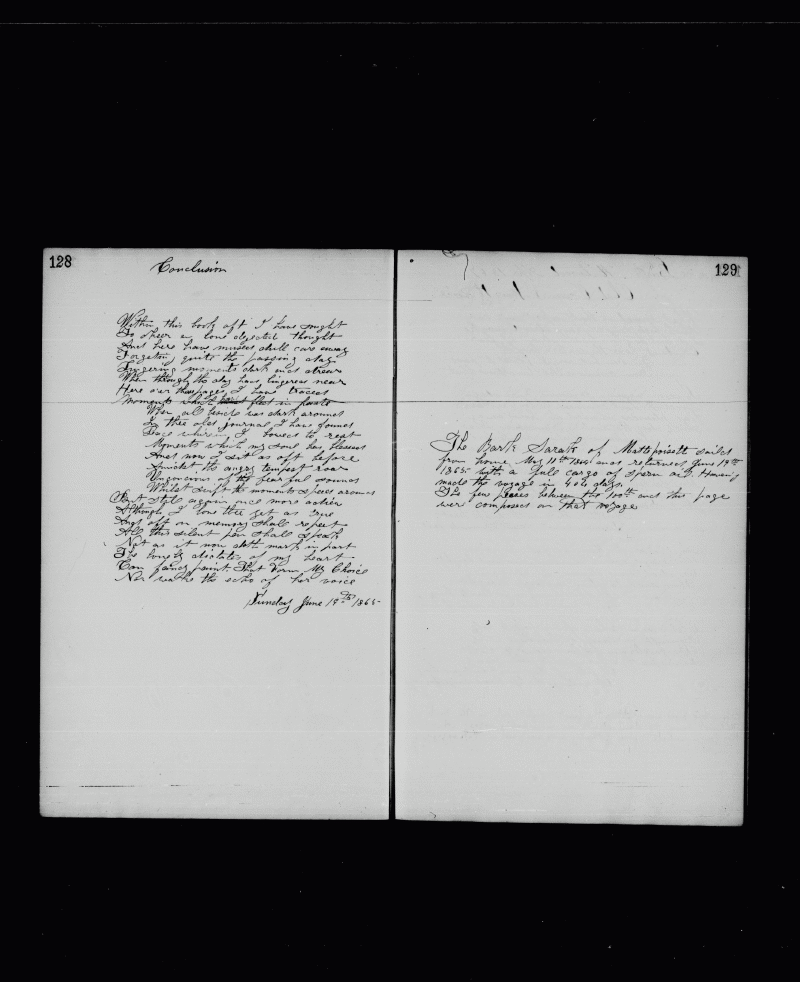 128
Conclusion
Within this book oft I have sought
To cheer a lone dejected thought
And here have mused dull care away
Forgeting quite the passing day
Lingering moments dark and drear
When through the day have lingered near
Here o'er these pages I have traced
Moments which fled in haste
When all beside was dark around
In this old journal I have found
Peace wherein I loved to rest
Moments which my soul has blessed
And now I sit as oft before
Amidst the angry tempest roar
Unconcious of the fearful sounds
Whilst swift the moments speed around
But style again once more
Although I love thee yet as true
And oft on memory shall repeat
All this silent pen shall speak
Not as it now doth mark in part
The lonely of my heart
Can fancy paint That Form My Choice
Nor the echo of her voice
Sunday June 18th 1865
129
The Bark Sarah of Mattepoisette sailed
from home May 11th and returned June 19th
1865 with a full cargo of sperm oil. Having
made the voyage in 404 days.
The few between the 100th and this page
were composed on that voyage